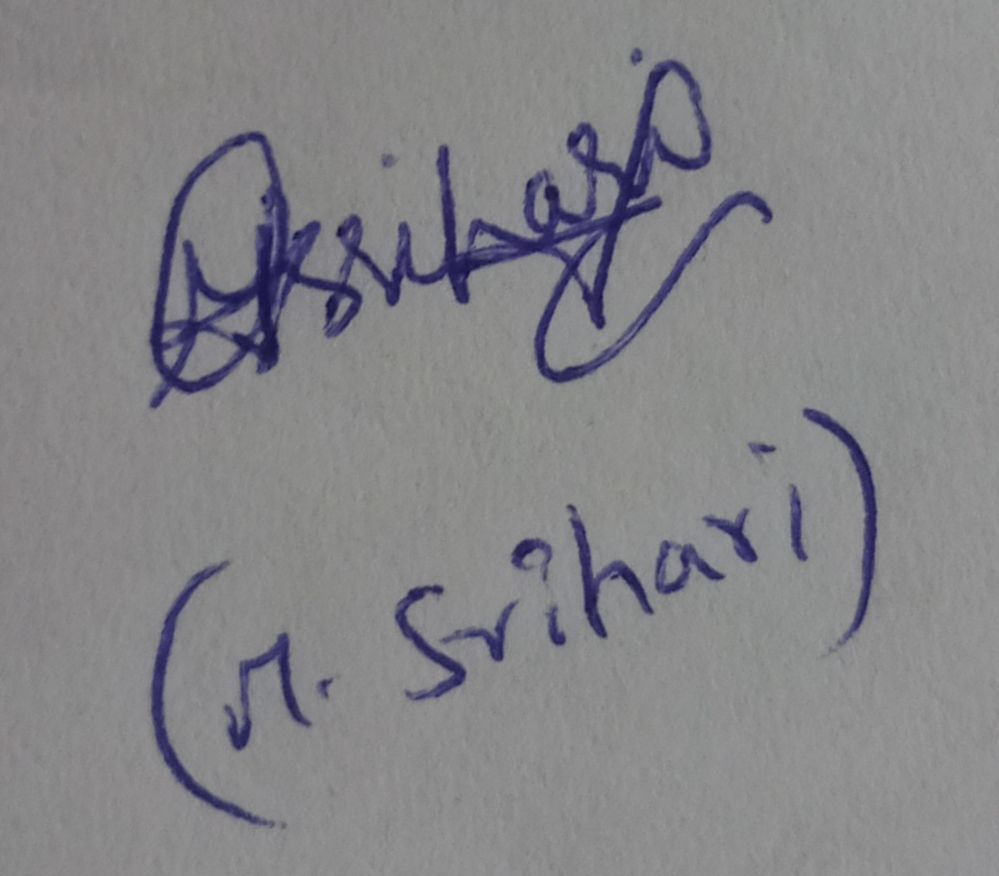 Msrihari
(M. Srihari)